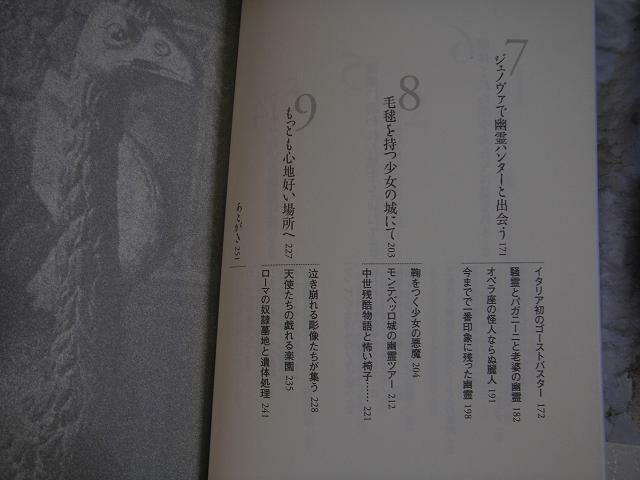 7
ジェノヴァで幽霊ハンターと出会う 171
イタリア初のゴーストバスター 172
騒霊とパガニーニと老婆の幽霊 182
オペラ座の怪人ならぬ麗人 191
今までで一番印象に残った幽霊 198
8
毛毬を持つ少女の城にて 203
鞠をつく少女の悪魔 204
モンテベッロ城の幽霊ツアー 212
中世残酷物語と怖い椅子…… 221
9
もっとも心地好い場所へ 227
泣き崩れる彫像たちが集う 228
天使たちの戯れる楽園 235
ローマの奴隷墓地と遺体処理 241
あとがき 251